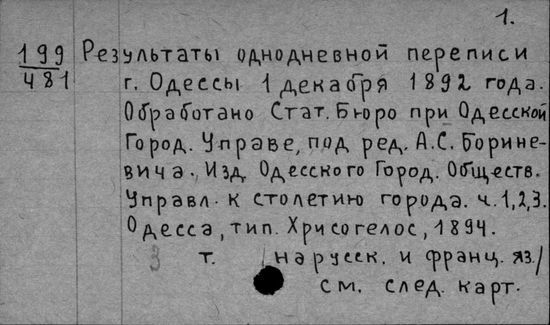 1.
199
481
Результаты однодневной переписи
г. Одессы 1 декабря 1892 года.
Обработано Стат. Бюро при Одесской
Город. Управе, под ред. А.С. Борине-
вича., Изд. Одесского Город. Обществ.
Управл. к столетию города. ч.1,2,3.
Одесса, тип. Хрисогелос, 1894.
3 т. /на русск. и франц. яз./
см. след. карт.